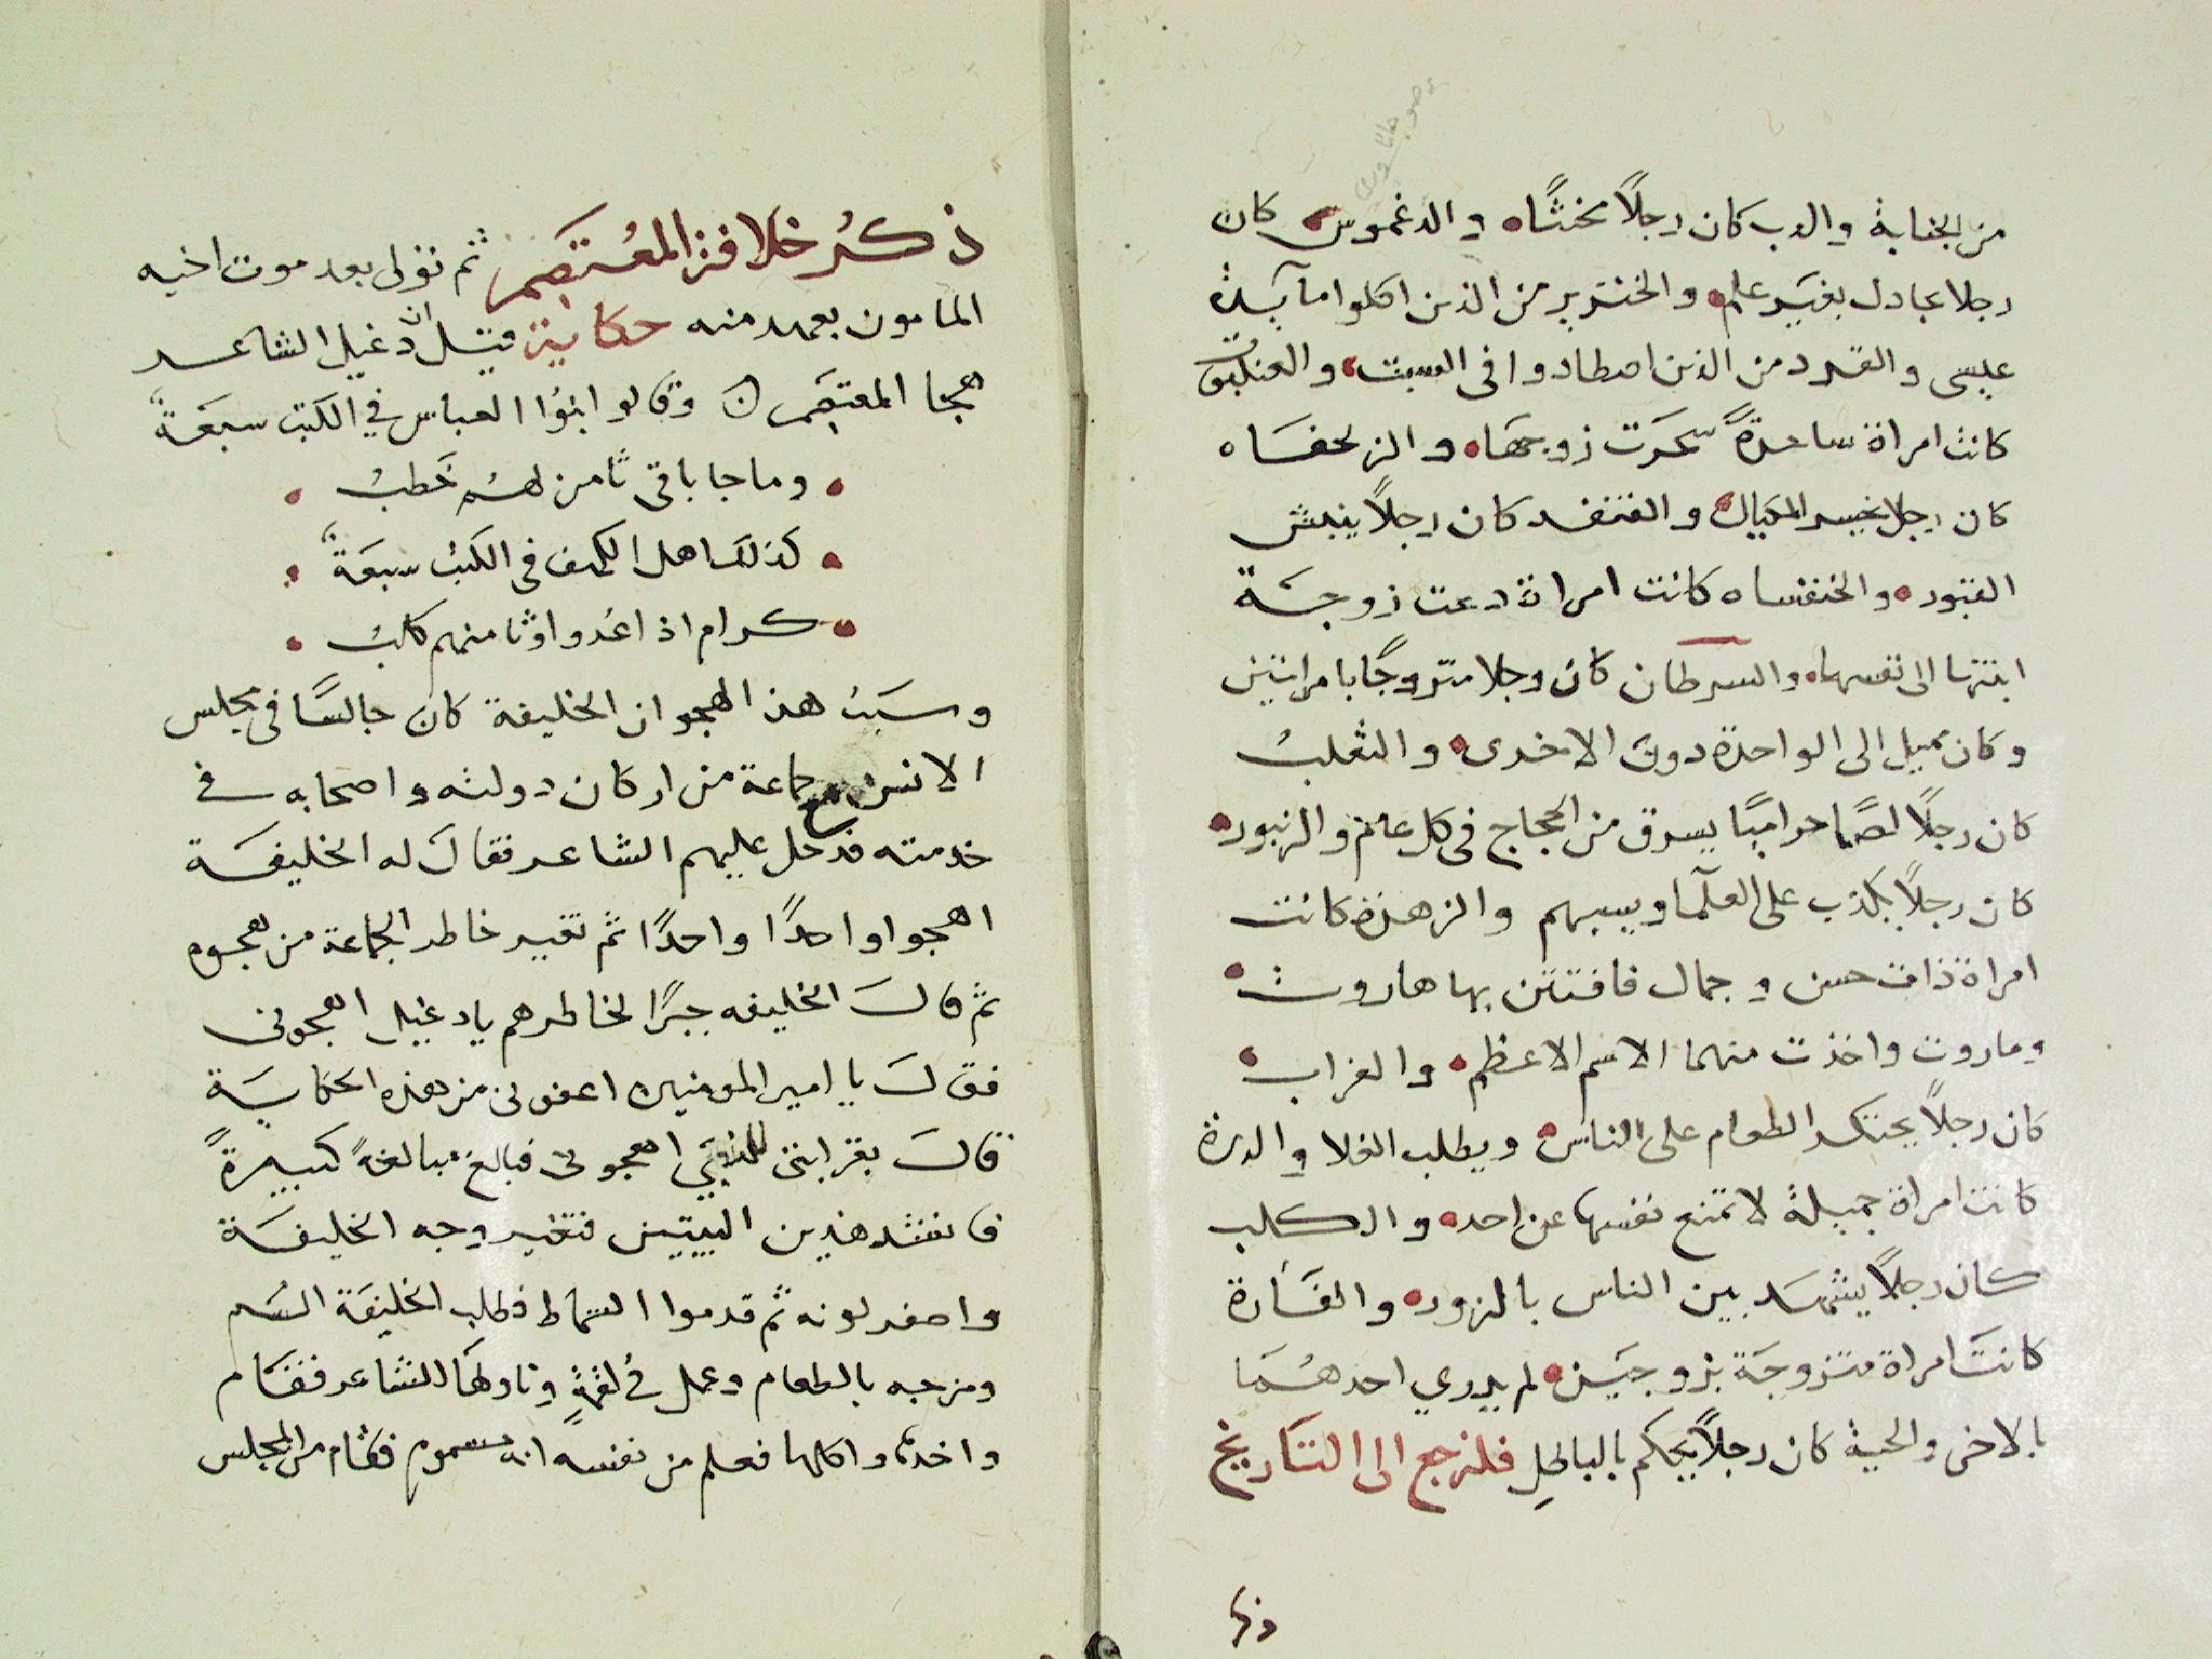 من الجنابة والدب كان رجلاً مخنثًاه والدغموس كان
رجلا يجادل بغير علم والخنزير من الذين اكلوا مآيدة
عيسى والقرد من الذين اصطادوا فى السبت والعنكبوت
كانت امراة ساحرةً سحرت زوجها والزلحفاه
كان رجل يخيس المكيال والقنفد كان رجلاً ينبش
القبور والخنفساه كانت امراة دعت زوجة
ابنتها الى نفسها والسرطان كان رجلا متزوجًا بامراتين
وكان يميل الى الواحدة دون الاخرى والثعلب
كان رجلاً لصًا حراميًا يسرق من الحجاج فى كل عام والزنبور
كان رجلاً يكذب على العلمآ ويسبهم والزهرة كانت
امراة ذات حسن وجمال فافتتن بها هاروت
وماروت واخذت منهما الاسم الاعظم والغراب
كان رجلاً يحتكر الطعام على الناس ويطلب الغلا والدرة
كانت امراة جميلة لا تمنع نفسها عن احد والكلب
كان رجلاً يشهد بين الناس بالزور والفأرة
كانت امراة متزوجة بزوجين لم يدري احدهما
بالاخر والحية كان رجلاً يحكم بالباطل فلنرجع الى التاريخ
ذكر
ذكر خلافة المعتصم ثم تولى بعد موت اخيه
المامون بعهد منه حكاية قيل ان دغبل الشاعر
هجا المعتصم وقال بنوا العباس في الكتب سبعة
وما جا باقى ثامن لهم خطب
كذلك اهل الكهف فى الكتب سبعة
كرام اذا عدوا وثامنهم كلب
وسبب هذا الهجو ان الخليفة كان جالسًا فى مجلس
الانس مع جماعة من اركان دولته واصحابه في
خدمته فدخل عليهم الشاعر فقال له الخليفة
اهجوا واحدًا واحدًا ثم تغير خاطر الجماعة من هجوه
ثم قال الخليفه جبرًا لخاطرهم يا دغبل اهجونى
فقال يا امير المومنين اعفونى من هذه الحكاية
قال بقرابتى للنبي اهجونى فبالغ مبالغةً كبيرةً
فانشد هذين البيتين فتغير وجه الخليفة
واصفر لونه ثم قدموا السماط فطلب الخليفة السم
ومزجه بالطعام وعمل في لقمةٍ وناولها للشاعر فقام
واخذها واكلها فعلم من نفسه انه مسموم فقام من المجلس